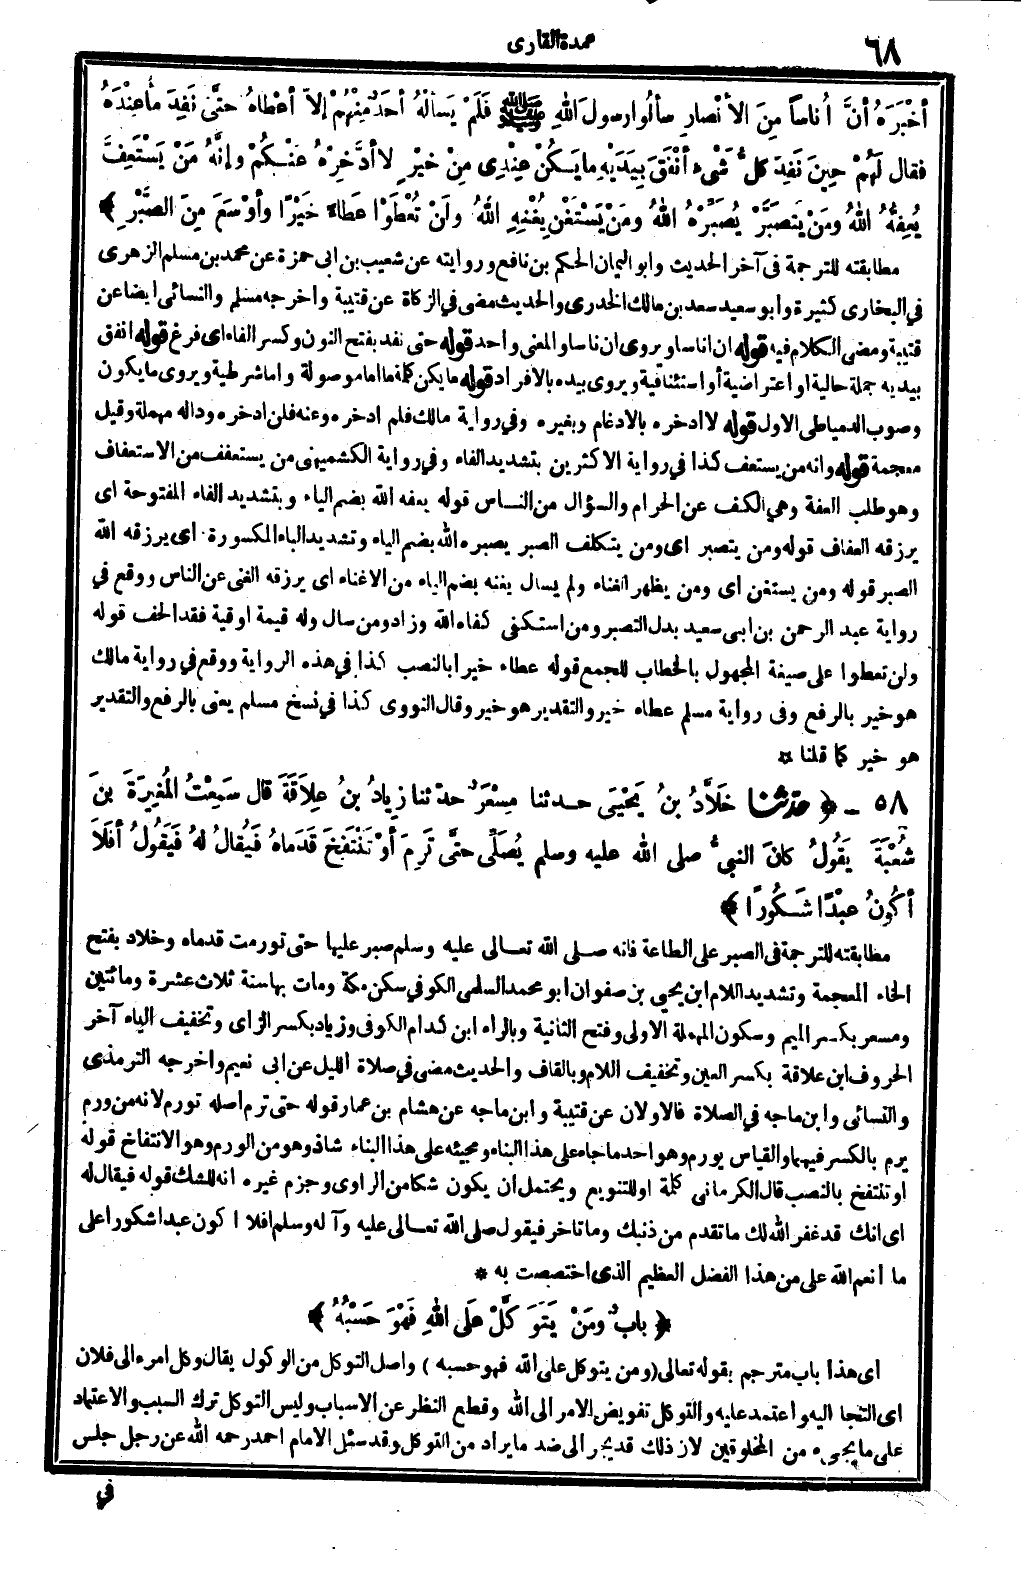 ٦٨
عمدة القارى
أخْبَرَهُ أنَّ أُناساً مِنَ الأنْصارِ سألُوا رسولَ اللهِ ﷺ فَلَمْ يَسألْهُ أحَدٌ مِنْهُمْ إلاّ أعْطاهُ حتَّى نَفِدَ ما عِنْدَهُ
فقال لَهُمْ حِينَ نَفِدَ كلُّ شَيْءٍ أنْفَقَ بِيَدَيْهِ ما يَكُنْ عِنْدِى مِنْ خَيْرٍ لا أدَّخِرْهُ عَنْكُمْ وإنَّهُ مَنْ يَسْتَعِفَّ
يُعِفُّهُ اللهُ ومَنْ يَتَصَبَّرْ يُصَبِّرْهُ اللهُ ومَنْ يَسْتَغْنِ يُغْنِهِ اللهُ ولَنْ تُعْطَوْا عطاءً خَيْرًا وأوْسَعَ مِنَ الصَّبْرِ ﴾
مطابقته للترجمة فى آخر الحديث وابو اليمان الحكم بن نافع وروايته عن شعيب بن ابى حمزة عن محمد بن مسلم الزهرى
في البخارى كثيرة وابو سعيد سعد بن مالك الخدرى والحديث مضى في الزكاة عن قتيبة واخرجه مسلم والنسائى ايضا عن
قتيبة ومضى الكلام فيه قوله ان اناسا ويروى ان ناسا والمعنى واحد قوله حتى نفد بفتح النون وكسر الفاء اى فرغ قوله انفق
بيديه جملة حالية او اعتراضية أو استئنافية ويروى بيده بالافراد قوله ما يكن كلمة ما اما موصولة واما شرطية ويروى ما يكون
وصوب الدمياطى الاول قوله لا ادخره بالادغام وبغيره وفي رواية مالك فلم ادخره وعنه فلن ادخره وداله مهملة وقيل
معجمة قوله وانه من يستعف كذا في رواية الاكثرين بتشديد الفاء وفي رواية الكشميهنى من يستعفف من الاستعفاف
وهو طلب العفة وهي الكف عن الحرام والسؤال من الناس قوله يعفه الله بضم الياء وبتشديد الفاء المفتوحة اى
يرزقه العفاف قوله ومن يتصبر اى ومن يتكلف الصبر يصبره الله بضم الياء وتشديد الباء المكسورة اى يرزقه الله
الصبر قوله ومن يستغن اى ومن يظهر الغناء ولم يسال يغنه بضم الياء من الاغناء اى يرزقه الغنى عن الناس ووقع في
رواية عبد الرحمن بن ابى سعيد بدل التصبر ومن استكفى كفاه الله وزاد ومن سال وله قيمة اوقية فقد الحف قوله
ولن تعطوا على صيغة المجهول بالخطاب للجمع قوله عطاء خيرا بالنصب كذا في هذه الرواية ووقع في رواية مالك
هو خير بالرفع وفى رواية مسلم عطاء خير والتقدير هو خير وقال النووى كذا في نسخ مسلم يعنى بالرفع والتقدير
هو خير كما قلنا ✡
٥٨ - ﴿ حدثنا خَلاَّدُ بنُ يَحْيَى حدثنا مِسْعَرٌ حدثنا زِيادُ بنُ عِلاَقَةَ قال سَمِعْتُ المُغِيرَةَ بنَ
شُعْبَةَ يَقُولُ كانَ النبىُّ صلى الله عليه وسلم يُصَلِّى حتَّى تَرِمَ أوْ تَنْتَفِخَ قَدَماهُ فَيُقالُ لهُ فَيَقُولُ أفَلاَ
أكُونُ عبْدًا شَكُورًا ﴾
مطابقته للترجمة فى الصبر على الطاعة فانه صلى الله تعالى عليه وسلم صبر عليها حتى تورمت قدماه وخلاد بفتح
الخاء المعجمة وتشديد اللام ابن يحيى بن صفوان ابو محمد السلمى الكوفي سكن مكة ومات بها سنة ثلاث عشرة ومائتين
ومسعر بكسر الميم وسكون المهملة الاولى وفتح الثانية وبالراء ابن كدام الكوفى وزياد بكسر الزاى وتخفيف الياء آخر
الحروف ابن علاقة بكسر العين وتخفيف اللام وبالقاف والحديث مضى في صلاة الليل عن ابى نعيم واخرجه الترمذى
والنسائى وابن ماجه في الصلاة فالاولان عن قتيبة وابن ماجه عن هشام بن عمار قوله حتى ترم اصله تورم لانه من ورم
يرم بالكسر فيهما والقياس يورم وهو احد ما جاء على هذا البناء ومجيئه على هذا البناء شاذ وهو من الورم وهو الانتفاخ قوله
او تنتفخ بالنصب قال الكرمانى كلمة او للتنويع ويحتمل ان يكون شكا من الراوى وجزم غيره انه للشك قوله فيقال له
اى انك قد غفر الله لك ما تقدم من ذنبك وما تاخر فيقول صلى الله تعالى عليه وآله وسلم افلا اكون عبدا شكورا على
ما انعم الله على من هذا الفضل العظيم الذى اختصصت به *
﴿ بابٌ ومَنْ يَتَوَكَّلْ عَلَى اللهِ فَهْوَ حَسْبُهُ ﴾
اى هذا باب مترجم بقوله تعالى (ومن يتوكل على الله فهو حسبه ) واصل التوكل من الوكول يقال وكل امره الى فلان
اى التجا اليه واعتمد عليه والتوكل تفويض الامر الى الله وقطع النظر عن الاسباب وليس التوكل ترك السبب والاعتماد
على ما يجيء من المخلوقين لان ذلك قد يجر الى ضد ما يراد من التوكل وقد سئل الامام احمد رحمه الله عن رجل جلس
في